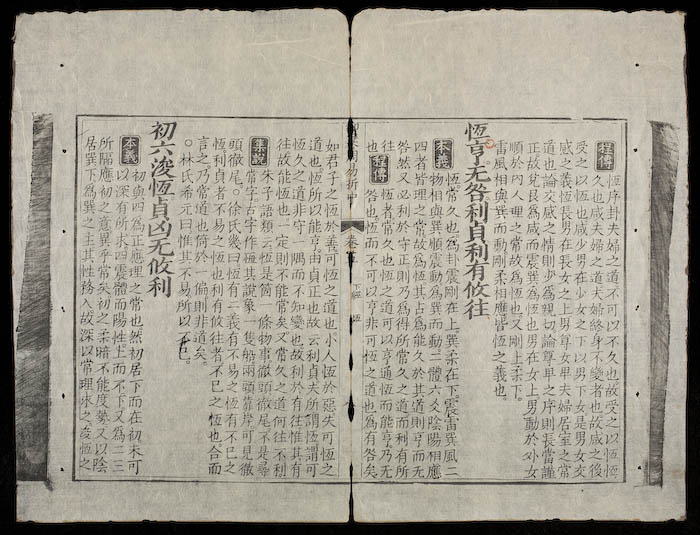 程傳 恆序卦夫婦之道不可以不久也故受之以恆恆
久也咸夫婦之道夫婦終身不變者也故咸之後
受之以恆也咸少男在少女之下以男下女是男女交
感之義恆長男在長女之上男尊女卑夫婦居室之常
道也論交感之情則少為親切論尊卑之序則長當謹
正故兌艮為咸而震巽為恆也男在女上男動於外女
順於內人理之常故為恆也又剛上柔下。
雷風相與巽而動剛柔相應皆恆之義也。
恆亨无咎利貞利有攸往
本義 恆。常久也。為卦震剛在上巽柔在下。震雷巽風二
物相與巽順震動為巽而動二體六爻陰陽相應
四者皆理之常故為恆其占為能久於其道則亨而无
咎然又必利於守正則乃為得所常久之道而利有所
往也。程傳 恆者常久也恆之道可以亨通恆而能亨乃无
咎也。恆而不可以亨非可恆之道也為有咎矣
周易折中
卷五
下經 恆
如君子之恆於善可恆之道也小人恆於惡失可恆之
道也恆所以能亨由貞正也故云利貞夫所謂恆謂可
恆久之道非守一隅而不知變也故利於有往惟其有
往故能恆也一定則不能常矣又常久之道何往不利
集說 朱子語類云恆是箇一條物事徹頭徹尾不是尋
常字古字作恆其說象一隻船兩頭靠岸可見徹
頭徹尾。徐氏幾曰恆有二義有不易之恆有不已之
恆利貞者不易之恆也利有攸往者不已之恆也。合而
言之乃常道也倚於一偏則非道矣。
。林氏希元曰惟其不易所以不已。
初六浚恆貞凶无攸利
本義 初與四為正應理之常也然初居下而在初未可
以深有所求四震體而陽性上而不下又為二三
所隔應初之意異乎常矣初之柔暗不能度勢又以陰
居巽下為巽之主其性務入故深以常理求之浚恆之